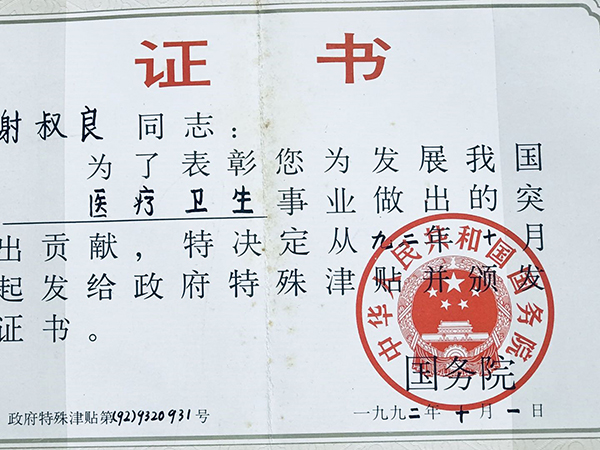 证书
谢叔良 同志：
为了表彰您为发展我国
医疗卫生事业做出的突
出贡献，特决定从九二年十月
起发给政府特殊津贴并颁发
证书。
中华人民共和国国务院
国务院
政府特殊津贴第(92)9320931号
一九九二年十月一日